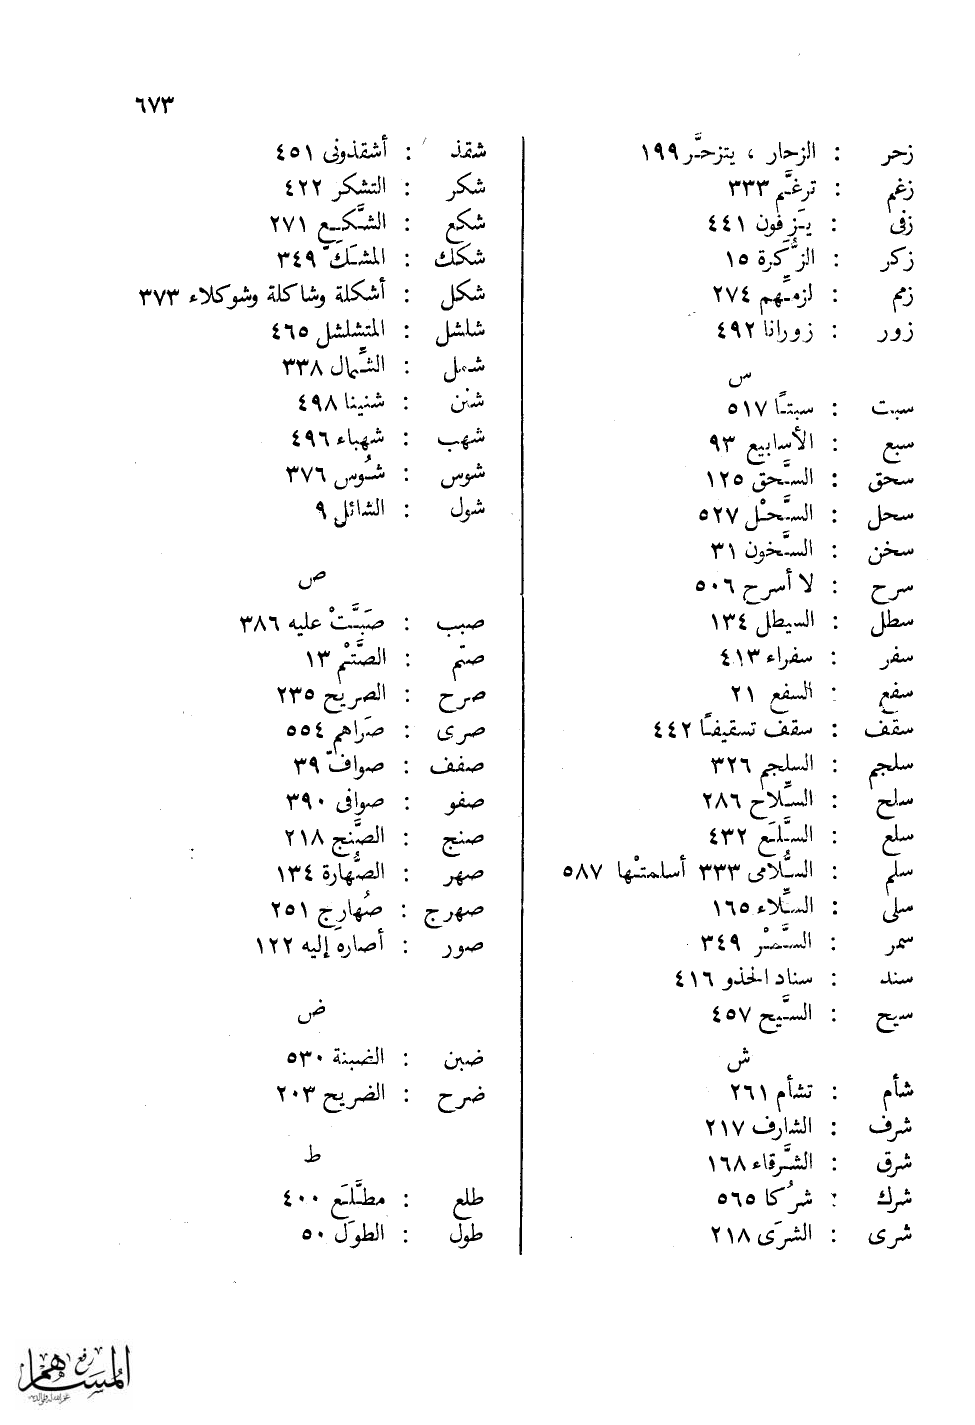 ٦٧٣
زحر : الزحار ، يتزحَّر ١٩٩
زغم : ترغَّم ٣٣٣
زفى : يـَزفون ٤٤١
زكر : الزُّكرة ١٥
زمم : لزمِّهم ٢٧٤
زور : زورانا ٤٩٢
س
سبت : سبتًا ٥١٧
سبع : الأسابيع ٩٣
سحق : السَّحق ١٢٥
سحل : السَّحْل ٥٢٧
سخن : السَّخون ٣١
سرح : لا أسرح ٥٠٦
سطل : السيطل ١٣٤
سفر : سفراء ٤١٣
سفع : السفع ٢١
سقف : سقف تسقيفًا ٤٤٢
سلجم : السلجم ٣٢٦
سلح : السِّلاح ٢٨٦
سلع : السَّلَع ٤٣٢
سلم : السُّلامى ٣٣٣ أسلمتْها ٥٨٧
سلى : السِّلاء ١٦٥
سمر : السَّمْر ٣٤٩
سند : سناد الخذو ٤١٦
سيح : السَّيح ٤٥٧
ش
شأم : تشأم ٢٦١
شرف : الشارف ٢١٧
شرق : الشَّرقاء ١٦٨
شرك : شرُكا ٥٦٥
شرى : الشرَى ٢١٨
شقذ : أشقذونى ٤٥١
شكر : التشكر ٤٢٢
شكع : الشَّكِع ٢٧١
شكك : المشَكّ ٣٤٩
شكل : أشكلة وشاكلة وشوكلاء ٣٧٣
شلشل : المتشلشل ٤٦٥
شمل : الشِّمال ٣٣٨
شنن : شنينا ٤٩٨
شهب : شهباء ٤٩٦
شوس : شُوس ٣٧٦
شول : الشائل ٩
ص
صبب : صَبَّتْ عليه ٣٨٦
صتم : الصَّتْم ١٣
صرح : الصريح ٢٣٥
صرى : صَراهم ٥٥٤
صفف : صوافّ ٣٩
صفو : صوافى ٣٩٠
صنج : الصَّنج ٢١٨
صهر : الصُّهارة ١٣٤
صهرج : صُهارِج ٢٥١
صور : أصاره إليه ١٢٢
ض
ضبن : الضبنة ٥٣٠
ضرح : الضريح ٢٠٣
ط
طلع : مطَّلَع ٤٠٠
طول : الطوَل ٥٠
رفع
المساهم